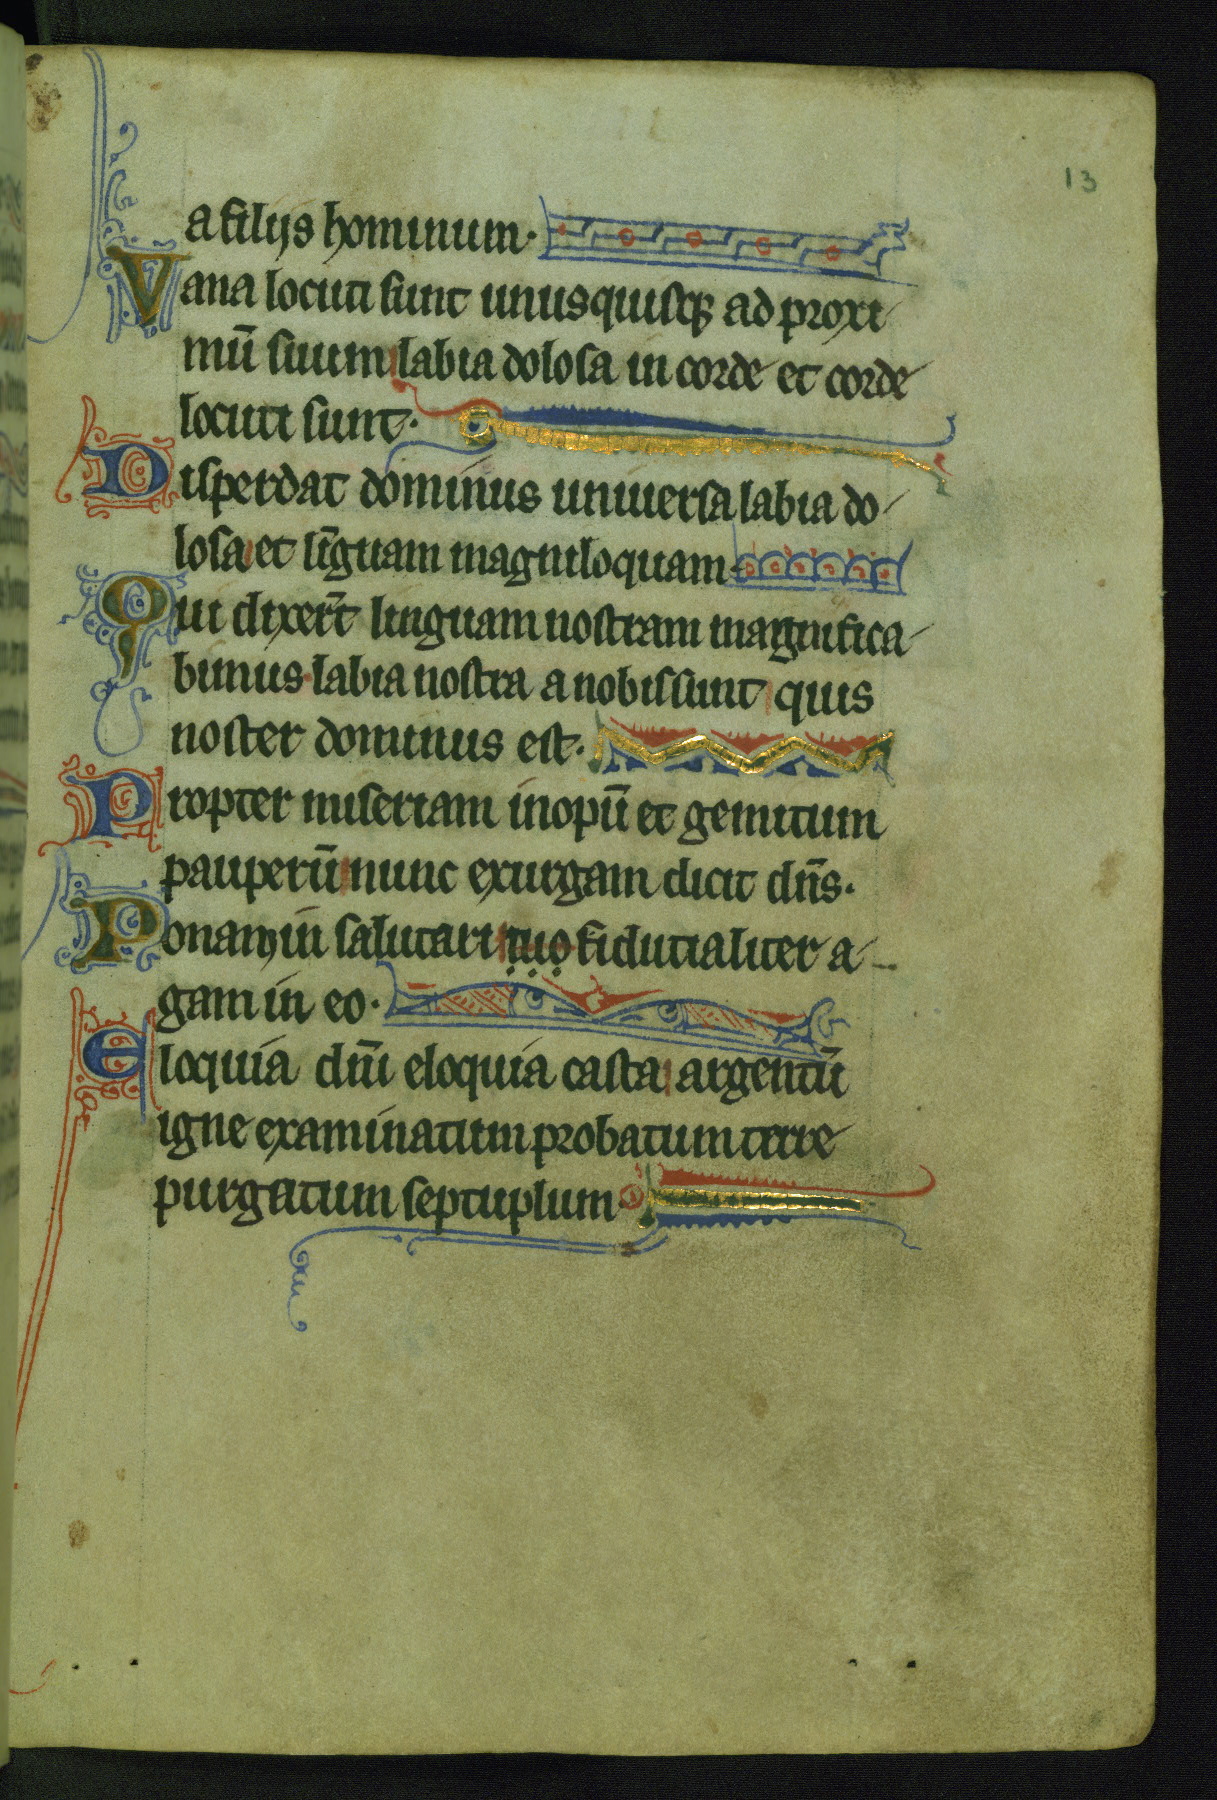 13
a filijs hominum.
Vana locuti sunt unusquisq; ad proxi
mū suum labia dolosa in corde et corde
locuti sunt.
Disperdat dominus uniuersa labia do
losa et linguam magniloquam.
Qui dixerūt linguam nostram magnifica
bimus labia nostra a nobis sunt quis
noster dominus est.
Propter miseriam inopū et gemitum
pauperū nunc exurgam dicit dn̄s.
Ponam in salutari tuo fiducialiter a
gam in eo.
Eloquia dn̄i eloquia casta argentū
igne examinatum probatum terre
purgatum septuplum